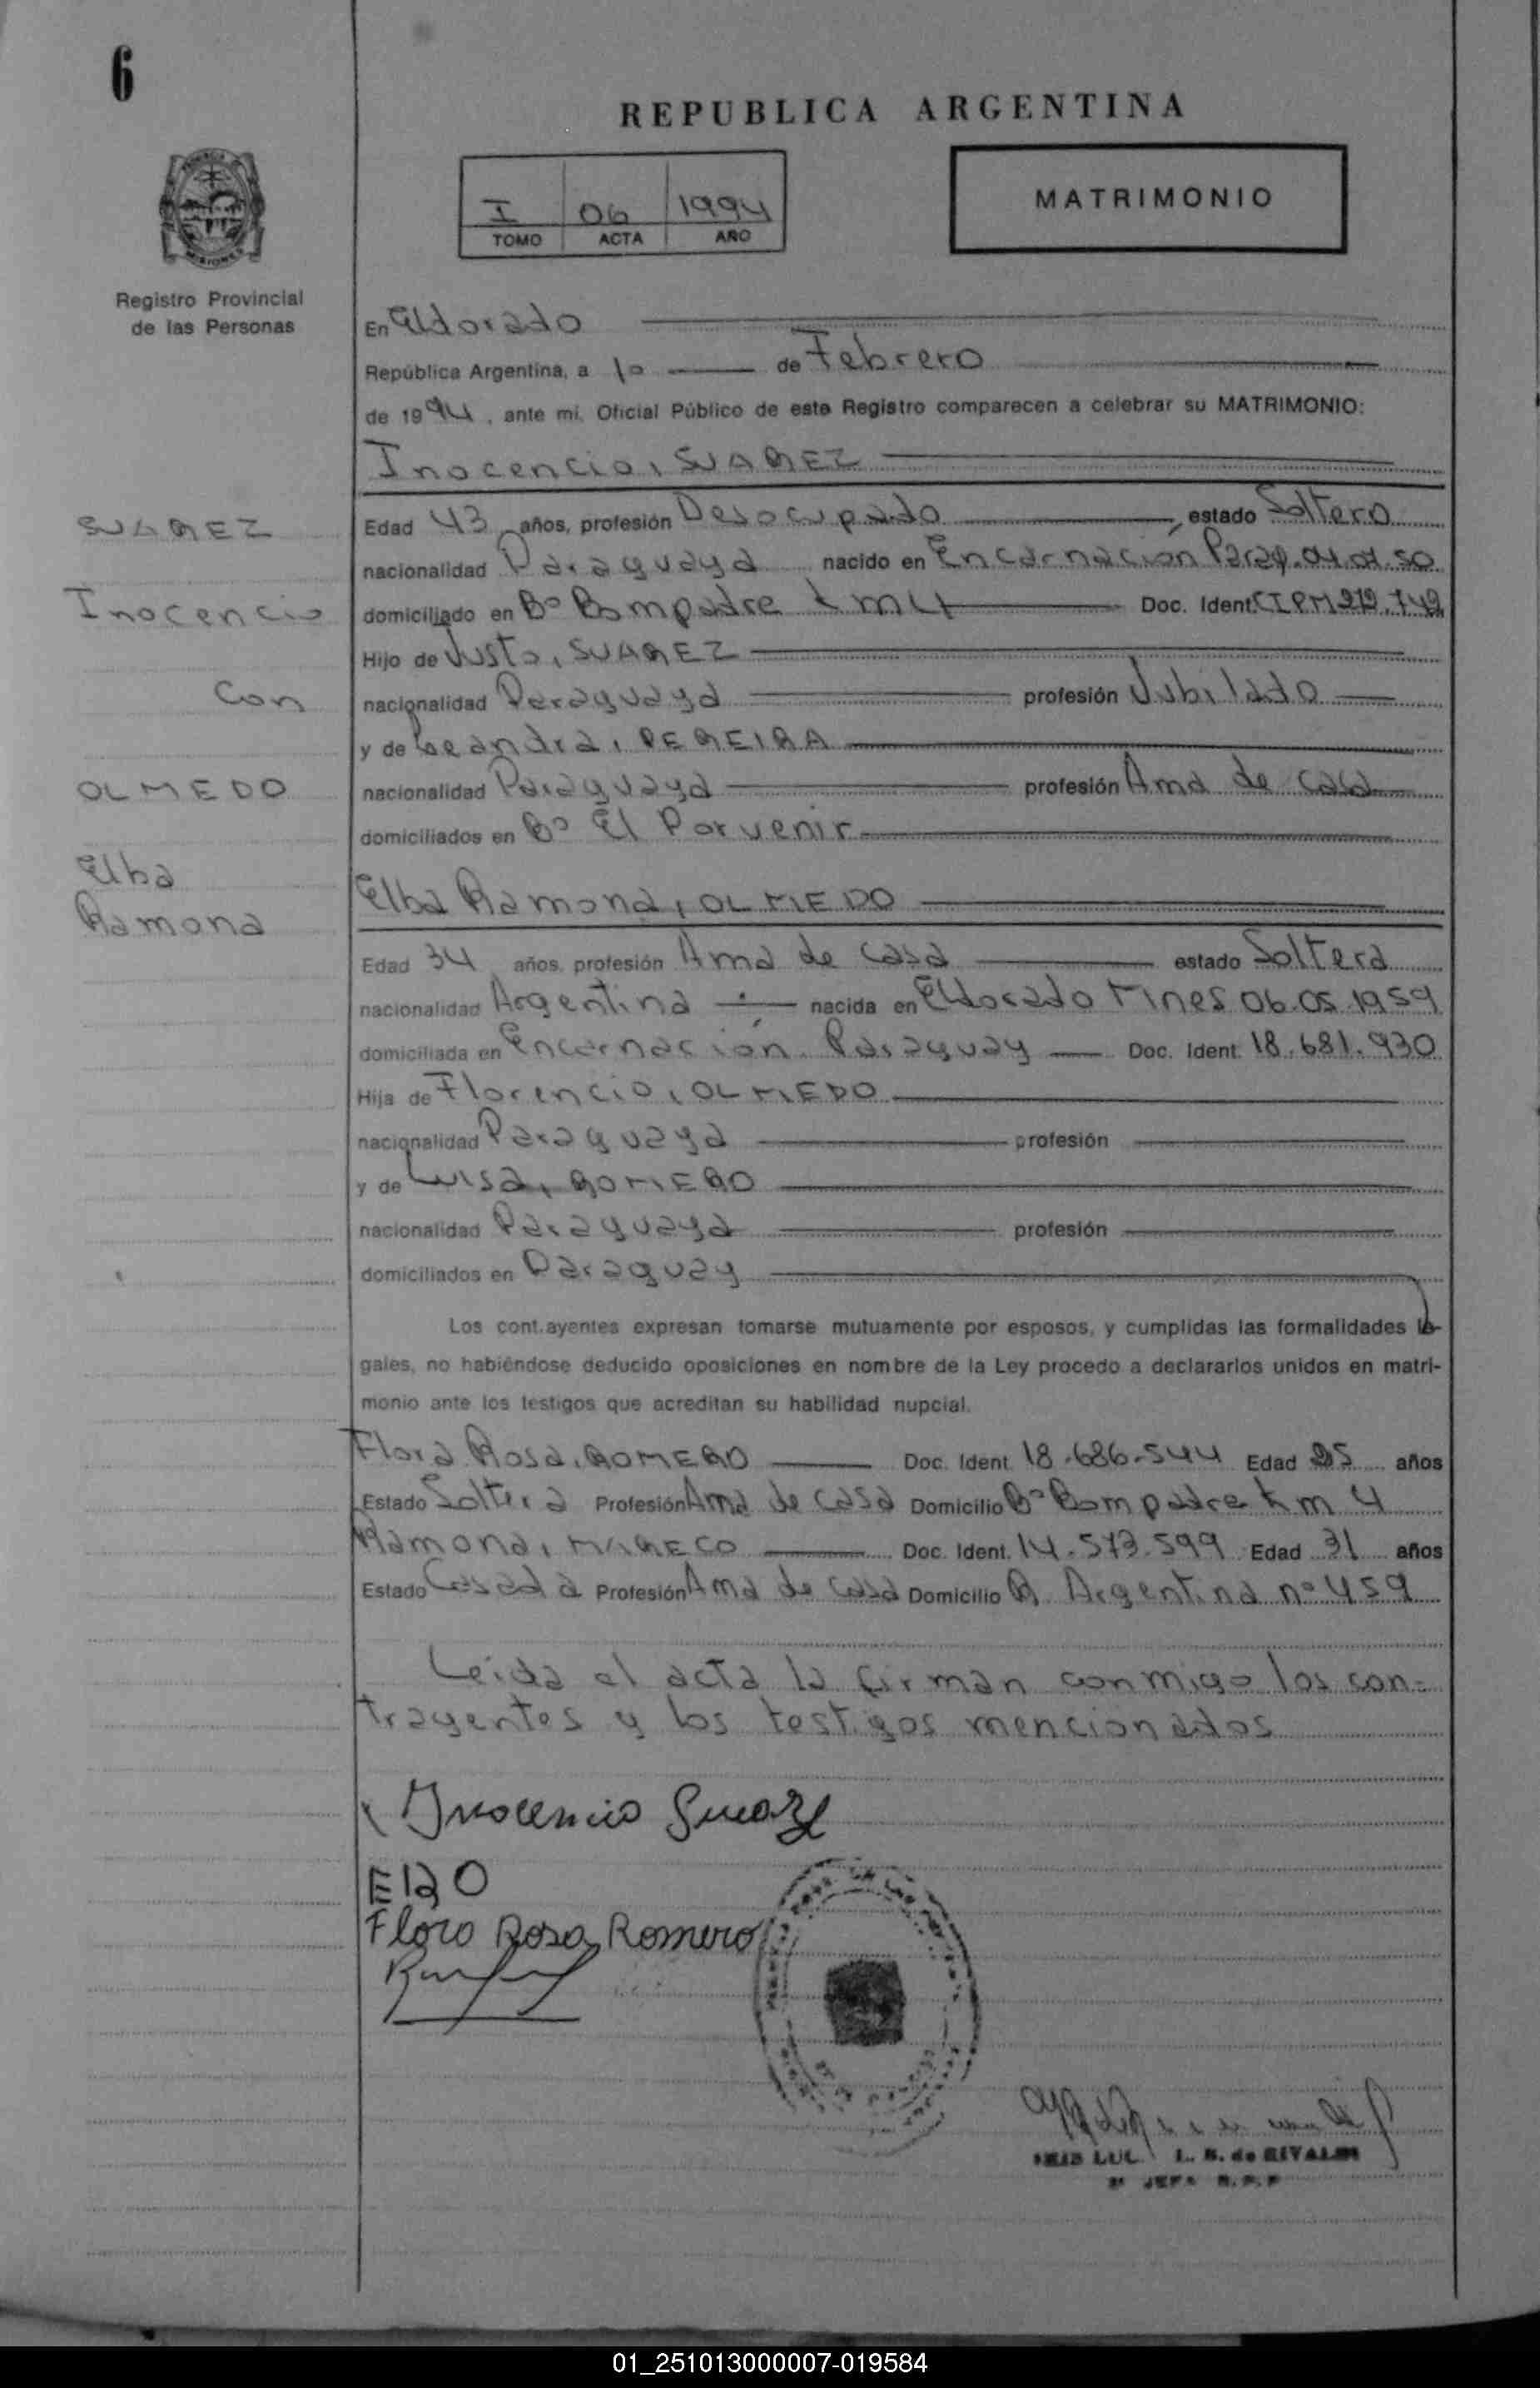 6
REPUBLICA ARGENTINA
I 06 1994
TOMO ACTA AÑO
MATRIMONIO
MISIONES
Registro Provincial
de las Personas
En Eldorado
República Argentina, a 10 de Febrero
de 1994, ante mi, Oficial Público de este Registro comparecen a celebrar su MATRIMONIO:
Inocencio, SUAREZ
SUAREZ
Inocencio
Con
OLMEDO
Elba
Ramona
Edad 43 años, profesión Desocupado estado Soltero
nacionalidad Paraguaya nacido en Encarnación Parag. 04.01.50
domiciliado en Bº Bompadre km 4 Doc. Ident. CIPM 212.742
Hijo de Justo, SUAREZ
nacionalidad Paraguaya profesión Jubilado
y de Leandra, PEREIRA
nacionalidad Paraguaya profesión Ama de casa
domiciliados en Bº El Porvenir
Elba Ramona, OLMEDO
Edad 34 años, profesión Ama de casa estado Soltera
nacionalidad Argentina nacida en Eldorado Mnes 06.05.1959
domiciliada en Encarnación. Paraguay Doc. Ident. 18.681.930
Hija de Florencio, OLMEDO
nacionalidad Paraguaya profesión
y de Luisa, ROMERO
nacionalidad Paraguaya profesión
domiciliados en Paraguay
Los cont.ayentes expresan tomarse mutuamente por esposos, y cumplidas las formalidades le-
gales, no habiéndose deducido oposiciones en nombre de la Ley procedo a declararlos unidos en matri-
monio ante los testigos que acreditan su habilidad nupcial.
Flora Rosa, ROMERO Doc. Ident. 18.686.544 Edad 25 años
Estado Soltera Profesión Ama de casa Domicilio Bº Bompadre km 4
Ramona, MARECO Doc. Ident. 14.573.599 Edad 31 años
Estado Casada Profesión Ama de casa Domicilio R. Argentina nº 459
Leida el acta la firman conmigo los con-
trayentes y los testigos mencionados
Inocencio Suarez
E12O
Flora Rosa Romero
L. B. de RIVALDI
JEFA R.P.P
01_251013000007-019584